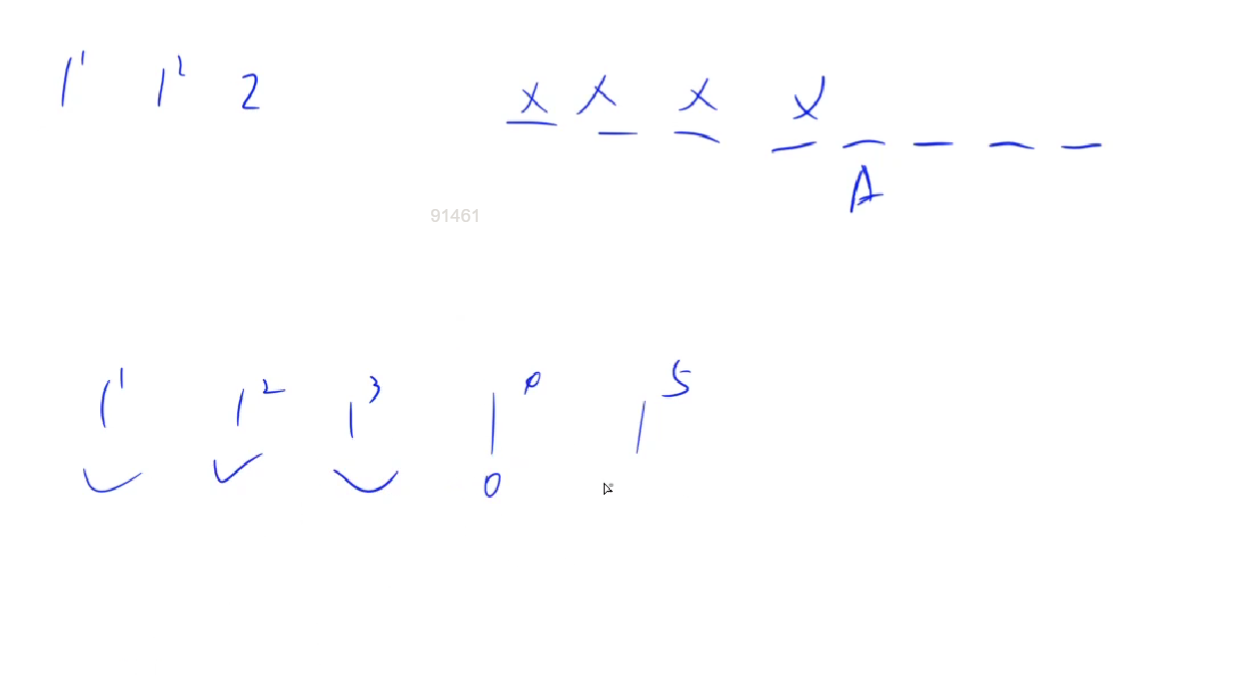 1¹ 1² 2
x x x x
A
91461
1¹ 1² 1³ 1⁰ 1⁵
0